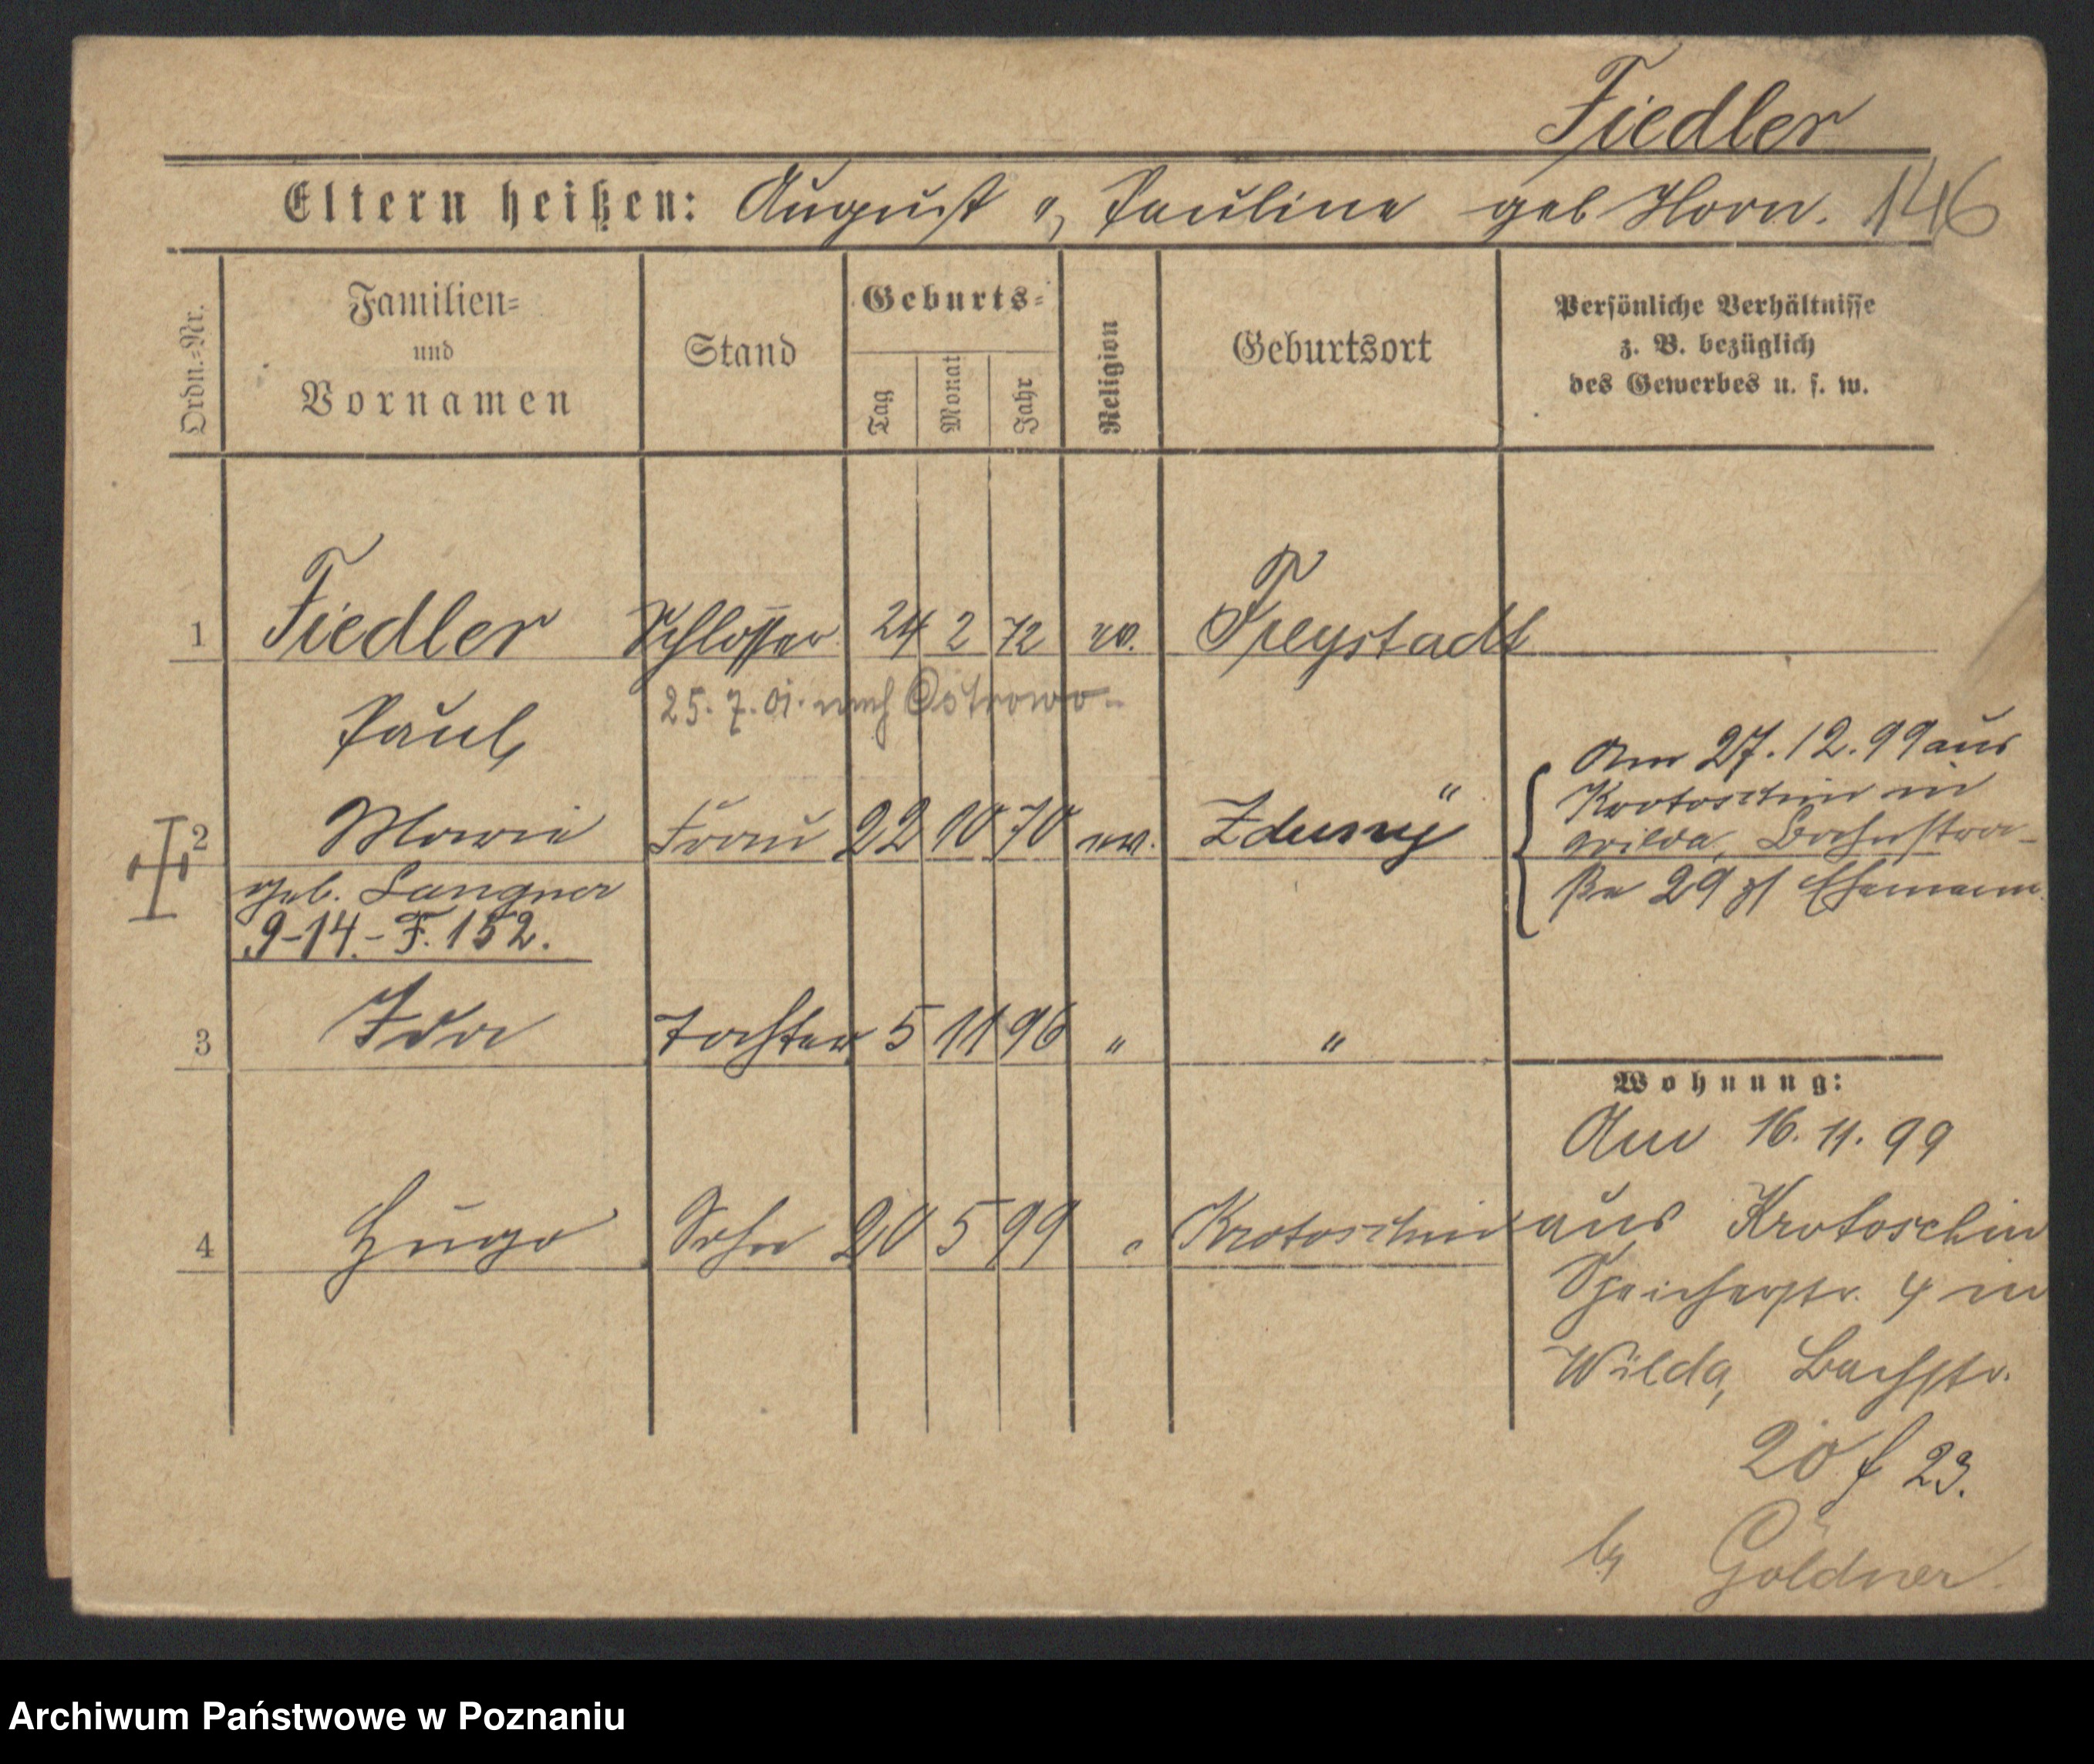 Fiedler
Eltern heißen: August u. Pauline geb Horn. 146
Ordn.-Nr.
Familien-
und
Vornamen
Stand
Geburts-
Tag
Monat
Jahr
Religion
Geburtsort
Persönliche Verhältnisse
z. B. bezüglich
des Gewerbes u. s. w.
1 Fiedler Schlosser 24 2 72 ev. Freystadt
25. 7. 01. nach Ostrowo
Paul
2 Marie Frau 22 10 70 ev. Zduny
geb. Langner
9-14.- F. 152.
Am 27. 12. 99 aus
Krotoschin in
Wilda, Bachstra-
ße 29 z/ Ehemann
3 Ida Tochter 5 11 96 " "
4 Hugo Sohn 20 5 99 " Krotoschin
Wohnung:
Am 16. 11. 99
aus Krotoschin
Speicherstr. 4 in
Wilda, Bachstr.
20 f 23.
by Goldner
Archiwum Państwowe w Poznaniu